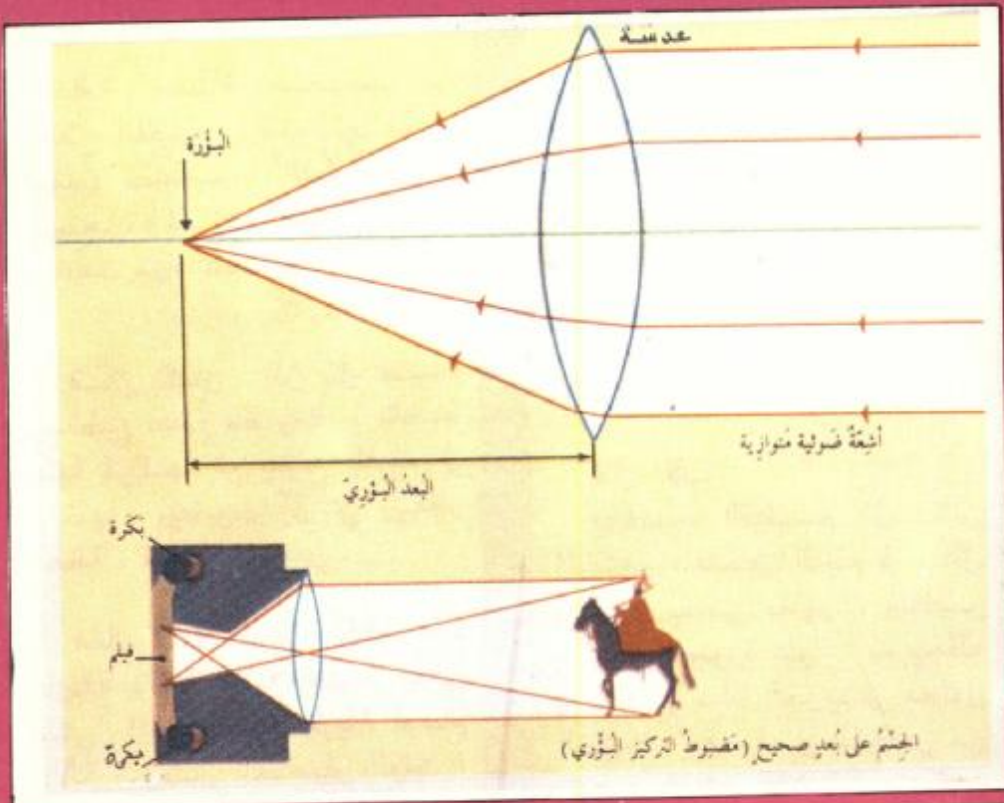 عدسة
البُؤْرَة
أشِعّةٌ ضَوئية مُتوازِية
البُعدُ البُؤرِيّ
بَكَرة
فيلم
بكرة
الجِسْمُ على بُعدٍ صحيحٍ (مَضبوطُ التركيز البُؤْري)